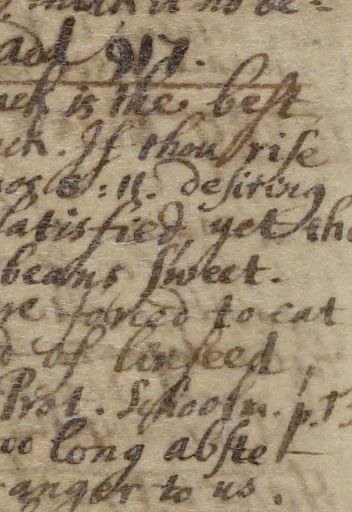 much it no be=
add 917.
ach is the best
ach. If thou rise
ros 6:11. desiring
satisfied, yet the
beans sweet.
re forced to eat
d of linseed,
Prot. Schoolm. p.
oo long abste
ranger to us.